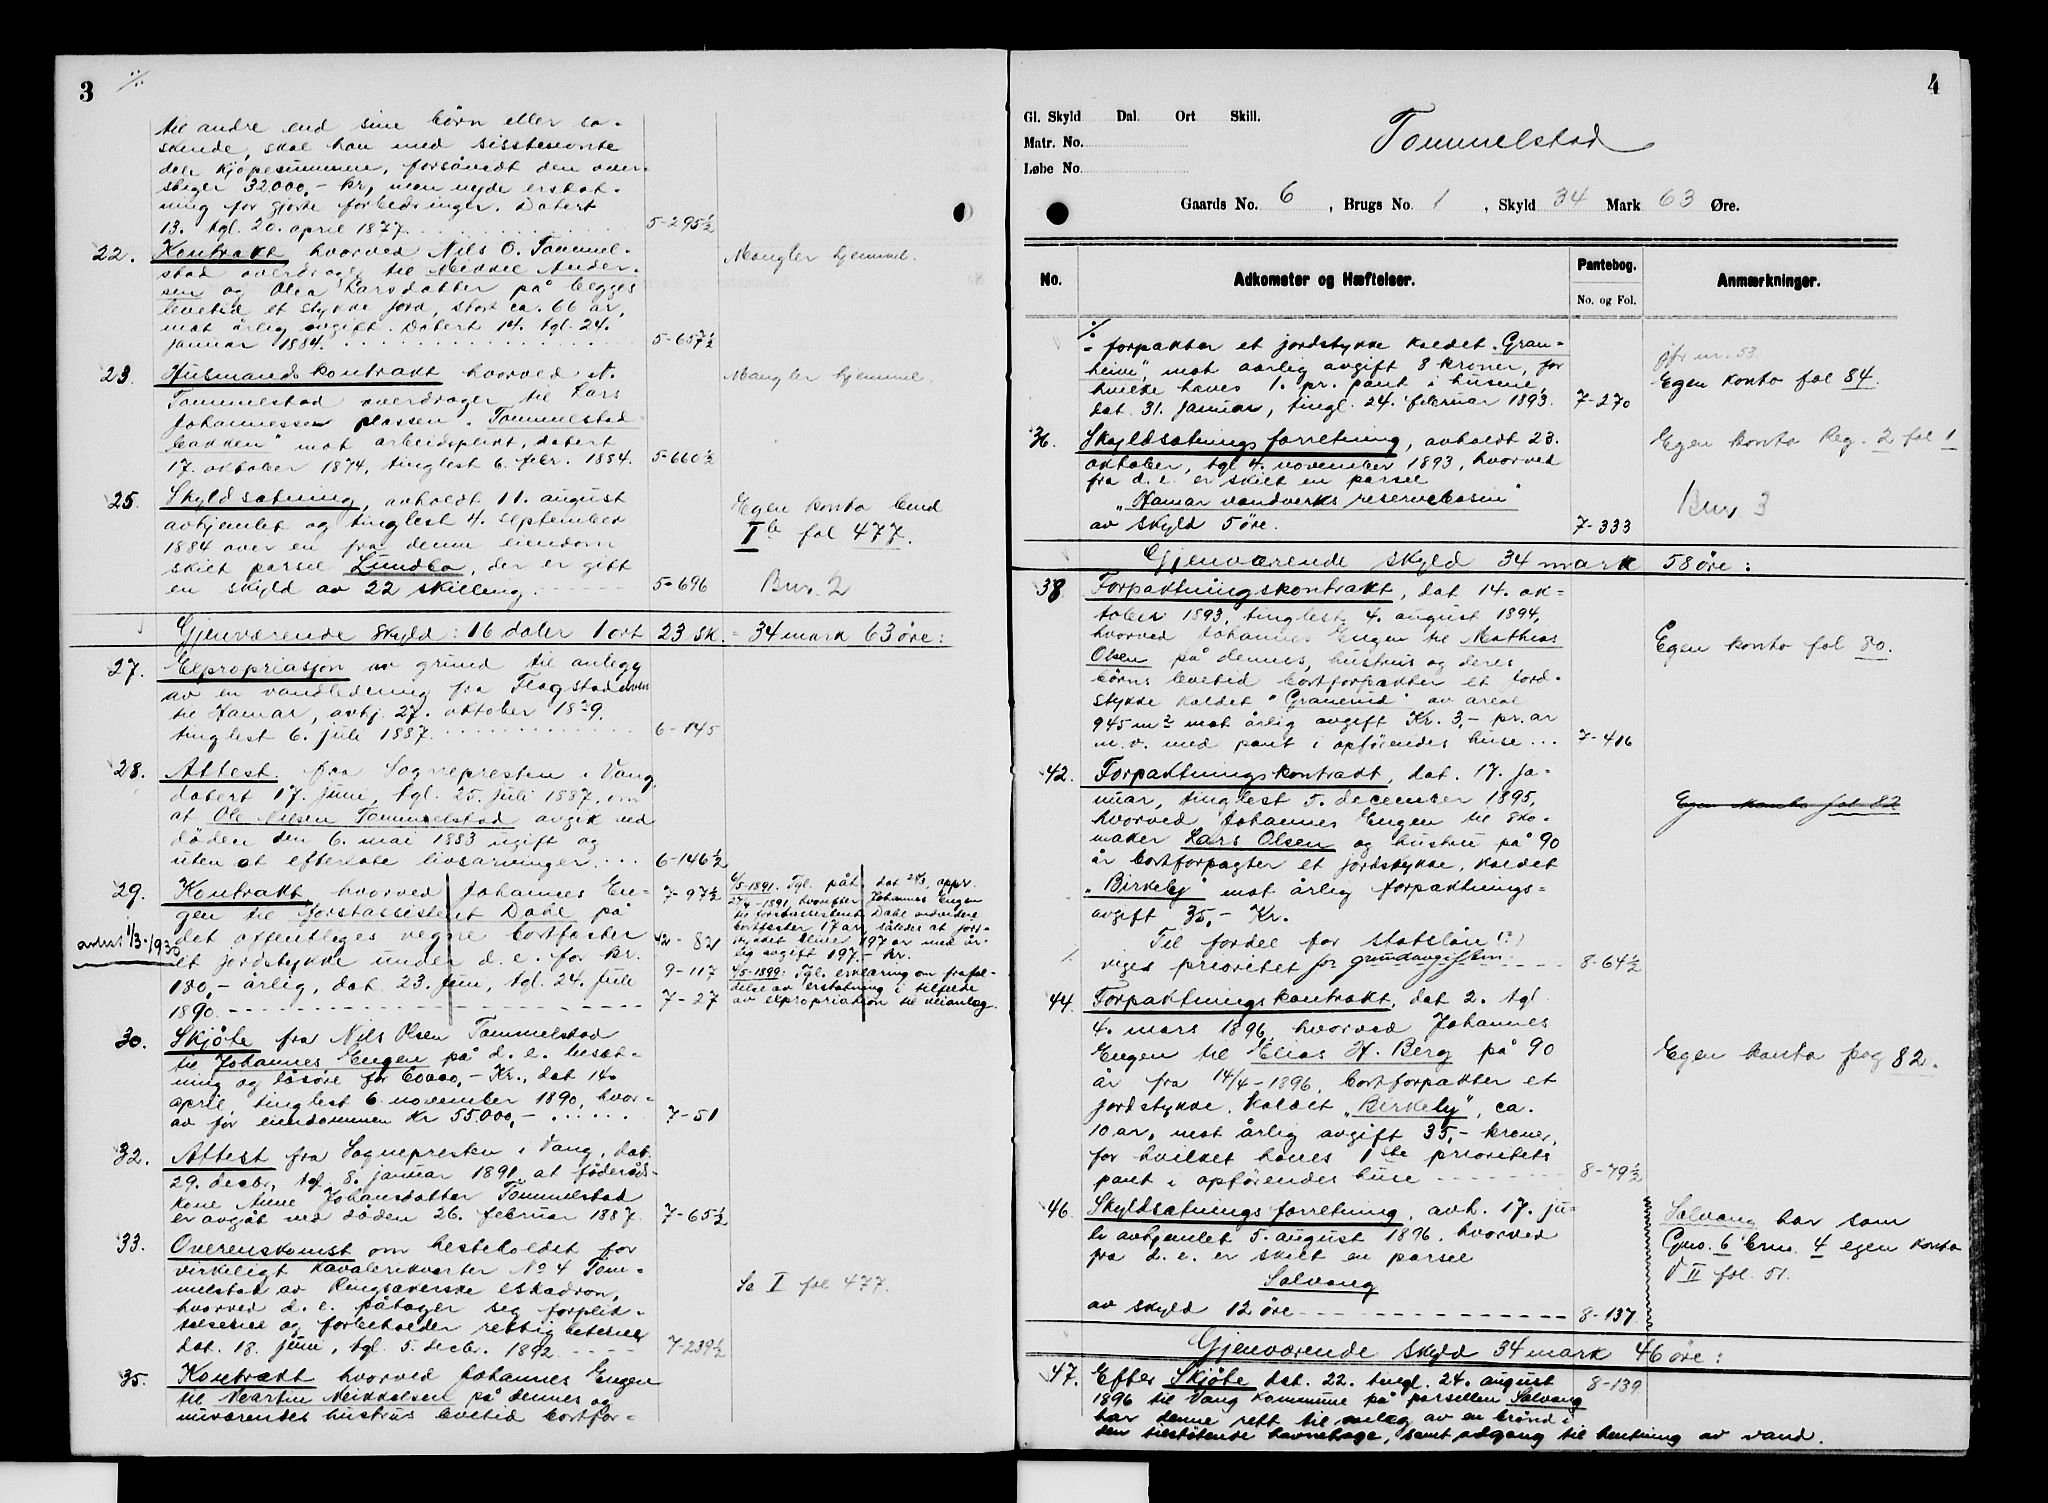 3 ·/.
til andre end sine børn eller sø-
skende, skal han med sisstnævnte
del kjøpesummen, forsåvidt den over-
stiger 32000,- kr, man nyde erstat-
ning for gjorte forbedringer. Datert
13. tgl. 20. april 1877. 5-295½
22. Kontrakt hvorved Nils O. Tommel-
stad overdrager til Mikkel Ander-
sen og Olea Larsdatter på begges
levetid et stykke jord, stort ca. 66 ar,
mot årlig avgift. Datert 14. tgl. 24.
januar 1884. 5-657½
Mangler hjemmel.
23. Husmandskontrakt hvorved N.
Tommelstad overdrager til Lars
Johannessen plassen „Tommelstad-
bakken" mot arbeidsplikt, datert
17. oktober 1874, tinglest 6. febr. 1884. 5-660½
Mangler hjemmel.
25. Skyldsætning, avholdt 11. august
avhjemlet og tinglest 4. september
1884 over en fra denne eiendom
skilt parsel Lundbo, der er gitt
en skyld av 22 skilling. 5-696
Egen konto bind
I b fol 477.
Bnr. 2
Gjenværende skyld: 16 daler 1 ort 23 sk. = 34 mark 63 øre:
27. Expropriasjon av grund til anlegg
av en vandledning fra Flagstadelven
til Hamar, avhj. 27. oktober 1879.
tinglest 6. juli 1887. 6-145
28. Attest fra Sognepresten i Vang,
datert 17. juni, tgl. 25. juli 1887, om
at Ole Nilsen Tommelstad avgik ved
døden den 6. mai 1883 ugift og
uten at efterlate livsarvinger. 6-146½
29. Kontrakt, hvorved Johannes En-
gen til forstassistent Dahl på
det offentliges vegne bortfester
et jordstykke under d. e. for kr.
180,- årlig, dat. 23. juni, tgl. 24. juli
1890.
avlyst 1/3-1930
7-97½
42-821
9-117
7-27
6/5-1891. Tgl. påt. dat 24/3, appr.
27/4-1891, hvorefter Johannes Engen
til forstassistent Dahl videre
bortfester 17 ar, således at jord-
stykket bliver 197 ar med år-
lig avgift 197,- kr.
4/5-1899. Tgl. erklæring om frafal-
delse av erstatning i tilfelde
av expropriation til veianlæg.
30. Skjøte fra Nils Olsen Tommelstad
til Johannes Engen på d. e. besæt-
ning og løsøre for 60000,- Kr., dat 14.
april, tinglest 6. november 1890, hvor-
av for eiendommen Kr 55000,- 7-51
32. Attest fra Sognepresten i Vang, dat.
29. decbr, tgl 8. januar 1891, at føderåds-
kone Anne Johansdatter Tommelstad
er avgåt ved døden 26. februar 1887. 7-65½
33. Overenskomst om besteholdet for
virkeligt kavalerikvarter No 4 Tom-
melstad av Ringsakerske eskadron,
hvorved d. e. påtager seg forplik-
telserne og forbeholder rettigheterne,
dat. 18. juni, tgl. 5. decbr. 1892. 7-239½
Se I fol 477.
35. Kontrakt hvorved Johannes Engen
til Martin Mikkelsen på dennes og
nuværendes hustrus levetid bortfor-
4
Gl. Skyld Dal. Ort Skill.
Matr. No.
Løbe No.
Tommelstad
Gaards No. 6, Brugs No. 1, Skyld 34 Mark 63 Øre.
No. Adkomster og Hæftelser. Pantebog. No. og Fol. Anmærkninger.
·/.
- forpakter et jordstykke kaldet „Gran-
heim", mot aarlig avgift 8 kroner, for
hvilke haves 1. pr. pant i husene,
dat. 31. januar, tingl. 24. februar 1893. 7-270
jfr nr. 53.
Egen konto fol 84.
36. Skyldsætningsforretning, avholdt 23.
oktober, tgl 4. november 1893, hvorved
fra d. e. er skilt en parsel
„Hamar vandverks reservebasin"
av skyld 5 øre. 7-333
Egen konto Reg. 2 fol 1
Bnr. 3
Gjenværende skyld 34 mark 58 øre:
38 Forpaktningskontrakt, dat 14. ok-
tober 1893, tinglest 4. august 1894,
hvorved Johannes Engen til Mathias
Olsen på dennes, hustrus og deres
børns levetid bortforpakter et jord-
stykke kaldet "Granelund" av areal
945 m² mot årlig avgift Kr. 3,- pr. ar
m. v. med pant i opførendes huse... 7-416
Egen konto fol 80.
42. Forpaktningskontrakt, dat. 17. ja-
nuar, tinglest 5. december 1895,
hvorved Johannes Engen til sko-
maker Lars Olsen og hustru på 90
år bortforpagter et jordstykke, kaldet
„Birkely" mot årlig forpaktnings-
avgift 35,- Kr.
Til fordel for statslån (?)
viges prioritet for grundavgiften. 8-64½
Egen konto fol 82
44. Forpaktningskontrakt, dat 2. tgl
4. mars 1896, hvorved Johannes
Engen til Elias H. Berg på 90
år fra 14/4-1896, bortforpakter et
jordstykke, kaldet „Birkely", ca.
10 ar, mot årlig avgift 35,- kroner,
for hvilket haves 1ste prioritets
pant i opførendes huse 8-79½
Egen konto pag 82.
46. Skyldsætningsforretning, avh. 17. ju-
li avhjemlet 5. august 1896, hvorved
fra d. e. er skilt en parsel
Solvang
av skyld 12 øre 8-137
Solvang har som
Gno. 6 bno. 4 egen konto
i II fol. 51.
Gjenværende skyld 34 mark 46 øre:
47. Efter Skjøte dat. 22. tingl. 24. august 8-139
1896 til Vang kommune på parsellen Solvang
har denne rett til anlæg av en brønd i
den tilstøtende havnehage, samt adgang til hentning av vand.